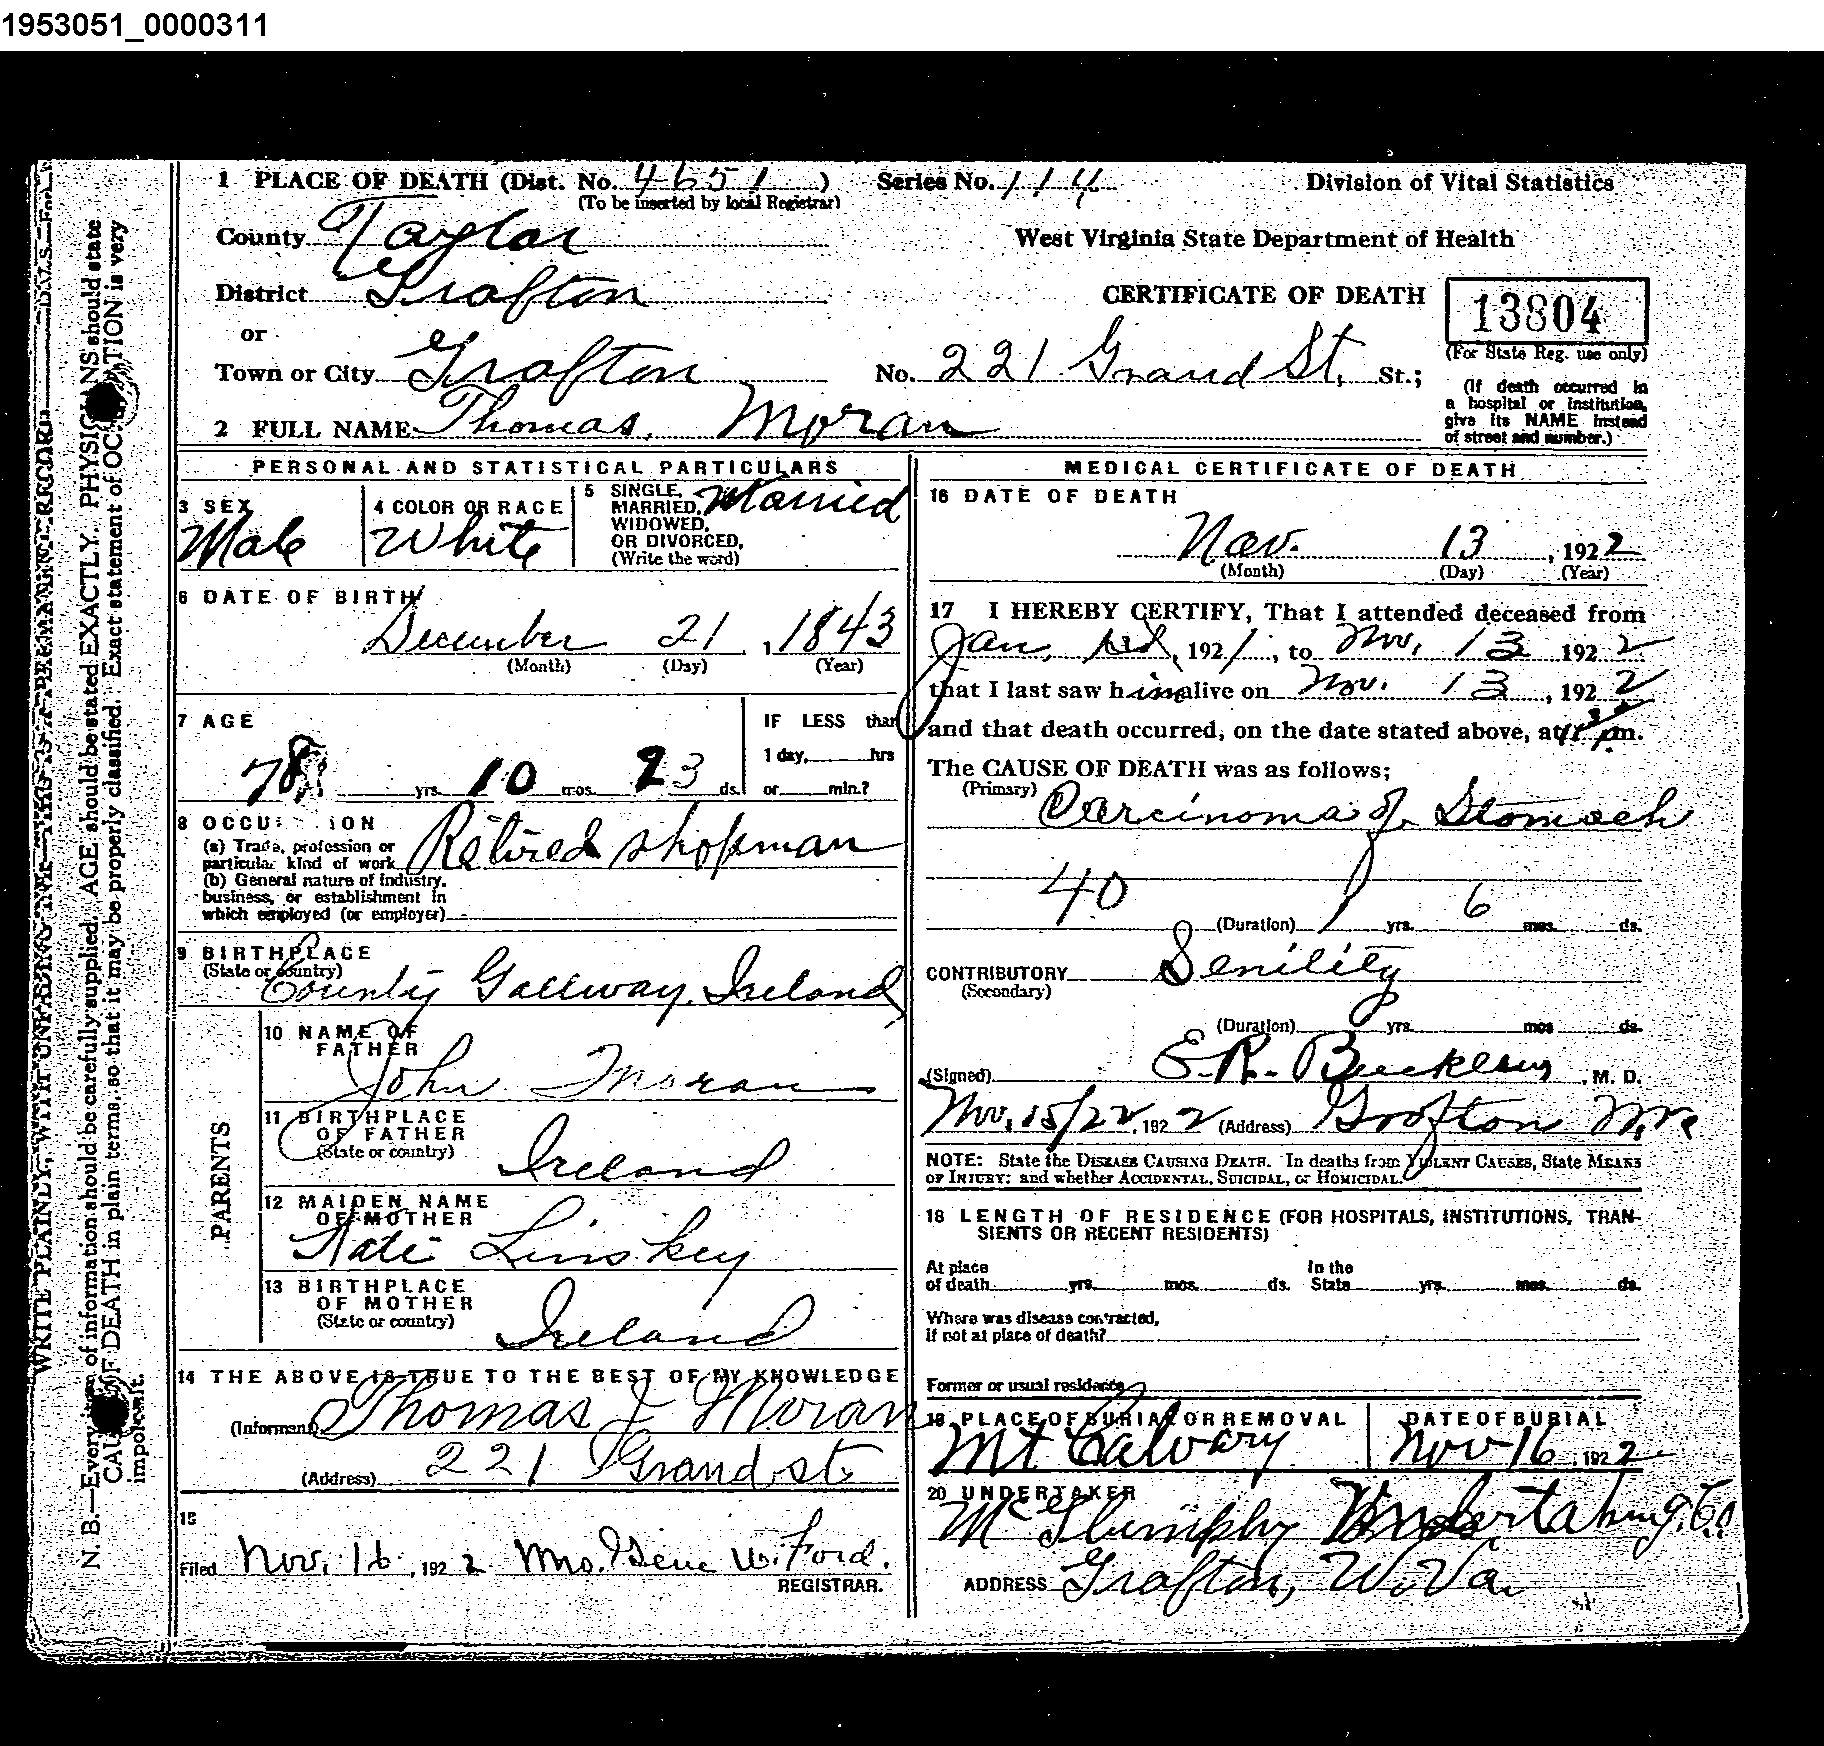 1953051_0000311
1 PLACE OF DEATH (Dist. No. 4651) Series No. 114 Division of Vital Statistics
(To be inserted by local Registrar)
County Taylor West Virginia State Department of Health
District Grafton CERTIFICATE OF DEATH 13804
or
(For State Reg. use only)
Town or City Grafton No. 221 Grand St. St.;
(If death occurred in a hospital or institution, give its NAME instead of street and number.)
2 FULL NAME Thomas Moran
PERSONAL AND STATISTICAL PARTICULARS
3 SEX
Male
4 COLOR OR RACE
White
5 SINGLE, MARRIED, WIDOWED, OR DIVORCED, (Write the word)
Married
6 DATE OF BIRTH
December 21, 1843
(Month) (Day) (Year)
7 AGE
78 yrs. 10 mos. 23 ds.
IF LESS than
1 day, hrs
or min.?
8 OCCU ION
(a) Trade, profession or
particular kind of work Retired shopman
(b) General nature of industry,
business, or establishment in
which employed (or employer)
9 BIRTHPLACE
(State or country)
County Gallway, Ireland
PARENTS
10 NAME OF
FATHER
John Moran
11 BIRTHPLACE
OF FATHER
(State or country)
Ireland
12 MAIDEN NAME
OF MOTHER
Kate Linskey
13 BIRTHPLACE
OF MOTHER
(State or country)
Ireland
14 THE ABOVE IS TRUE TO THE BEST OF MY KNOWLEDGE
(Informant) Thomas J Moran
(Address) 221 Grand st
15
Filed Nov. 16, 1922 Mrs. Gene W. Ford.
REGISTRAR.
MEDICAL CERTIFICATE OF DEATH
16 DATE OF DEATH
Nov. 13, 1922
(Month) (Day) (Year)
17 I HEREBY CERTIFY, That I attended deceased from
Jan. 1st, 1921, to Nov. 13 1922
that I last saw him alive on Nov. 13, 1922
and that death occurred, on the date stated above, at m.
The CAUSE OF DEATH was as follows;
(Primary)
Carcinoma of Stomach
40
(Duration) 1 yrs. 6 mos. ds.
CONTRIBUTORY Senility
(Secondary)
(Duration) yrs. mos ds.
(Signed) E. R. , M. D.
Nov. 15/22, 1922 (Address) Grafton W.Va
NOTE: State the DISEASE CAUSING DEATH. In deaths from VIOLENT CAUSES, State MEANS
OF INJURY; and whether ACCIDENTAL, SUICIDAL, or HOMICIDAL.
18 LENGTH OF RESIDENCE (FOR HOSPITALS, INSTITUTIONS, TRAN-
SIENTS OR RECENT RESIDENTS)
At place In the
of death yrs. mos. ds. State yrs. mos. ds.
Where was disease contracted,
if not at place of death?
Former or usual residence
19 PLACE OF BURIAL OR REMOVAL
Mt Calvary
DATE OF BURIAL
Nov 16, 1922
20 UNDERTAKER
Undertaking Co.
ADDRESS Grafton, W. Va.
WRITE PLAINLY, WITH UNFADING INK—THIS IS A PERMANENT RECORD
N. B.—Every item of information should be carefully supplied. AGE should be stated EXACTLY. PHYSICIANS should state
CAUSE OF DEATH in plain terms, so that it may be properly classified. Exact statement of OCCUPATION is very
important.